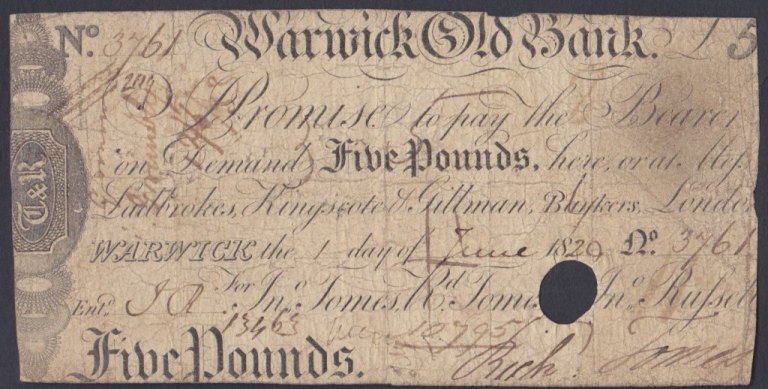 No. 3761 Warwick Old Bank. £5
I Promise to pay the Bearer
on Demand Five Pounds, here, or at Messrs
Ladbrokes, Kingscote & Gillman, Bankers, London
WARWICK the 1 day of June 1820 No. 3761
Entd. J A For Jno. Tomes, Rd. Tomes Jno. Russell
13463 10795
Five Pounds. Rich. Tomes
T&R